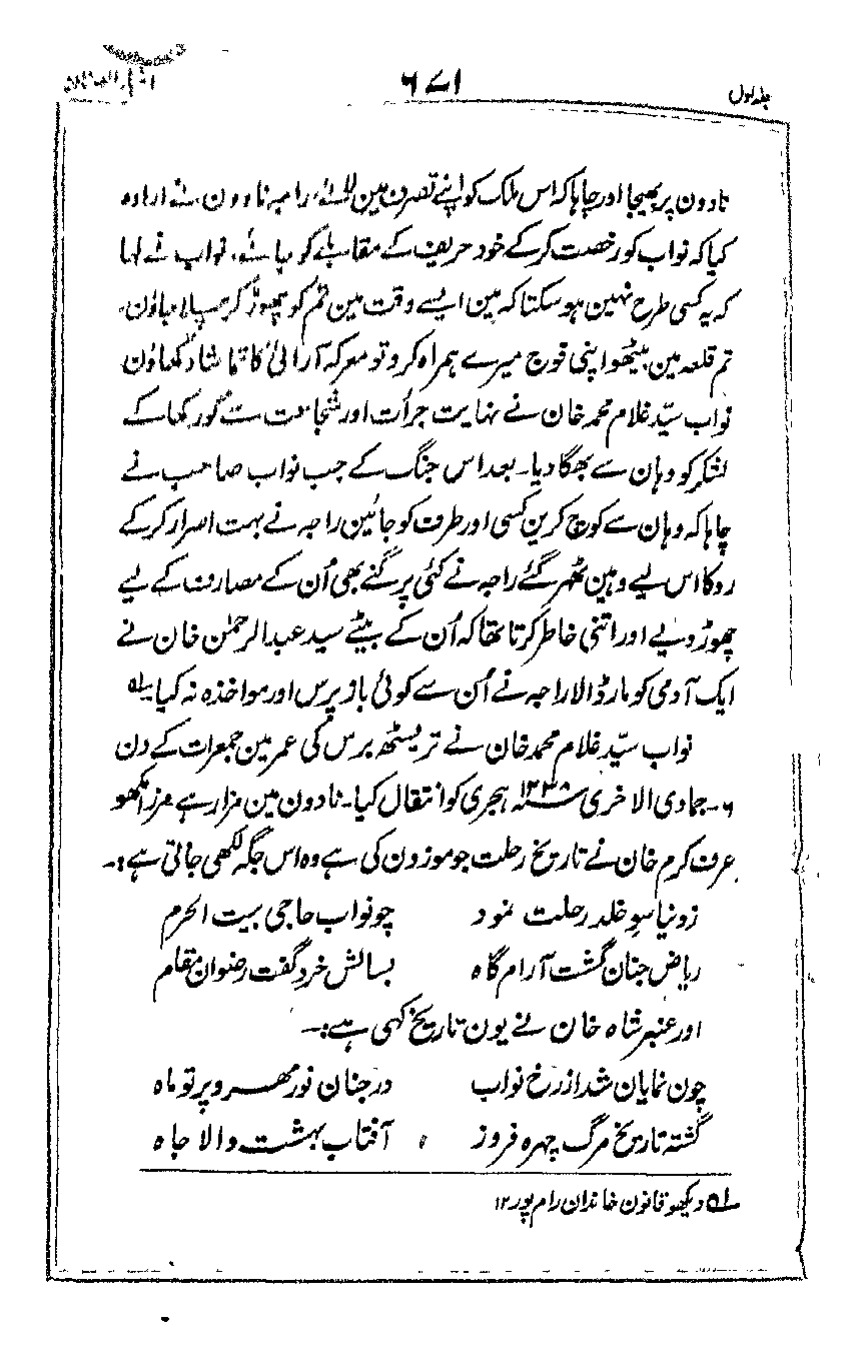 جلد اول
۶۷۱
نادون پر بھیجا اور چاہا کہ اس ملک کو اپنے تصرف مین لائے، راجہ نادون نے ارادہ
کیا کہ نواب کو رخصت کرکے خود حریف کے مقابلے کو جائے، نواب نے کہا
کہ یہ کسی طرح نہین ہو سکتا کہ مین ایسے وقت مین تم کو چھوڑ کر چلا جاؤن۔
تم قلعہ مین بیٹھو اپنی فوج میرے ہمراہ کرو تو معرکہ آرائی کا تماشا دکھاؤن
نواب سیّد غلام محمد خان نے نہایت جرأت اور شجاعت سے گورکھا کے
لشکر کو وہان سے بھگا دیا۔ بعد اس جنگ کے جب نواب صاحب نے
چاہا کہ وہان سے کوچ کرین کسی اور طرف کو جائین راجہ نے بہت اصرار کرکے
روکا اس لیے وہین ٹھہر گئے راجہ نے کئی پرگنے بھی اُن کے مصارف کے لیے
چھوڑ دیے اور اتنی خاطر کرتا تھا کہ اُن کے بیٹے سید عبدالرحمٰن خان نے
ایک آدمی کو مار ڈالا راجہ نے اُن سے کوئی باز پرس اور مواخذہ نہ کیا۔ لہ
نواب سیّد غلام محمد خان نے تریسٹھ برس کی عمر مین جمعرات کے دن
۶۔ جمادی الاخری ۱۲۳۸؁ ہجری کو انتقال کیا۔ نادون مین مزار ہے مرزا مکھو
عرف کرم خان نے تاریخ رحلت جو موزون کی ہے وہ اس جگہ لکھی جاتی ہے:۔
ز دنیا سوِ خلد رحلت نمود چو نواب حاجی بیت الحرم
ریاض جنان گشت آرام گاہ بسالش خرد گفت رضوان مقام
اور عنبر شاہ خان نے یون تاریخ کہی ہے:۔
چون نمایان شد از رخ نواب در جنان نور مھر و پرتو ماہ
گشتہ تاریخ مرگ چہرہ فروز آفتاب بہشت والا جاہ
لہ دیکھو قانون خاندان رام پور ۱۲